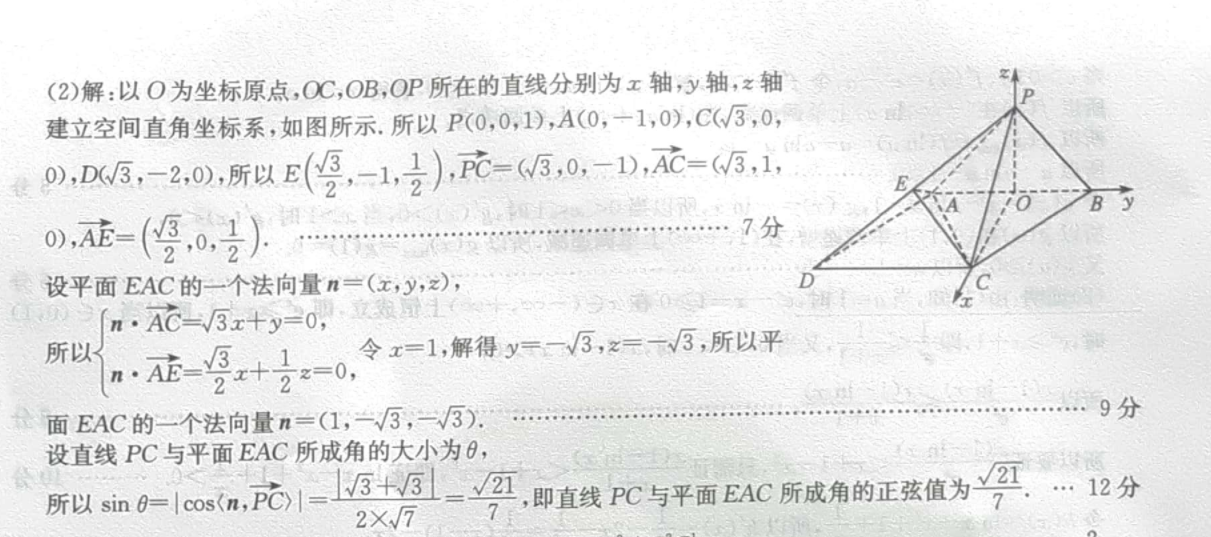 (2)解:以 O 为坐标原点,OC,OB,OP 所在的直线分别为 x 轴,y 轴,z 轴
建立空间直角坐标系,如图所示.所以 P(0,0,1),A(0,-1,0),C(√3,0,
0),D(√3,-2,0),所以 E(√3/2,-1,1/2),PC→=(√3,0,-1),AC→=(√3,1,
0),AE→=(√3/2,0,1/2). ………… 7 分
设平面 EAC 的一个法向量 n=(x,y,z),
所以{n·AC→=√3x+y=0, n·AE→=√3/2x+1/2z=0, 令 x=1,解得 y=-√3,z=-√3,所以平
面 EAC 的一个法向量 n=(1,-√3,-√3). ………… 9 分
设直线 PC 与平面 EAC 所成角的大小为 θ,
所以 sin θ=|cos⟨n,PC→⟩|=|√3+√3|/(2×√7)=√21/7,即直线 PC 与平面 EAC 所成角的正弦值为√21/7. … 12 分
z
P
E
A
O
B
y
D
C
x